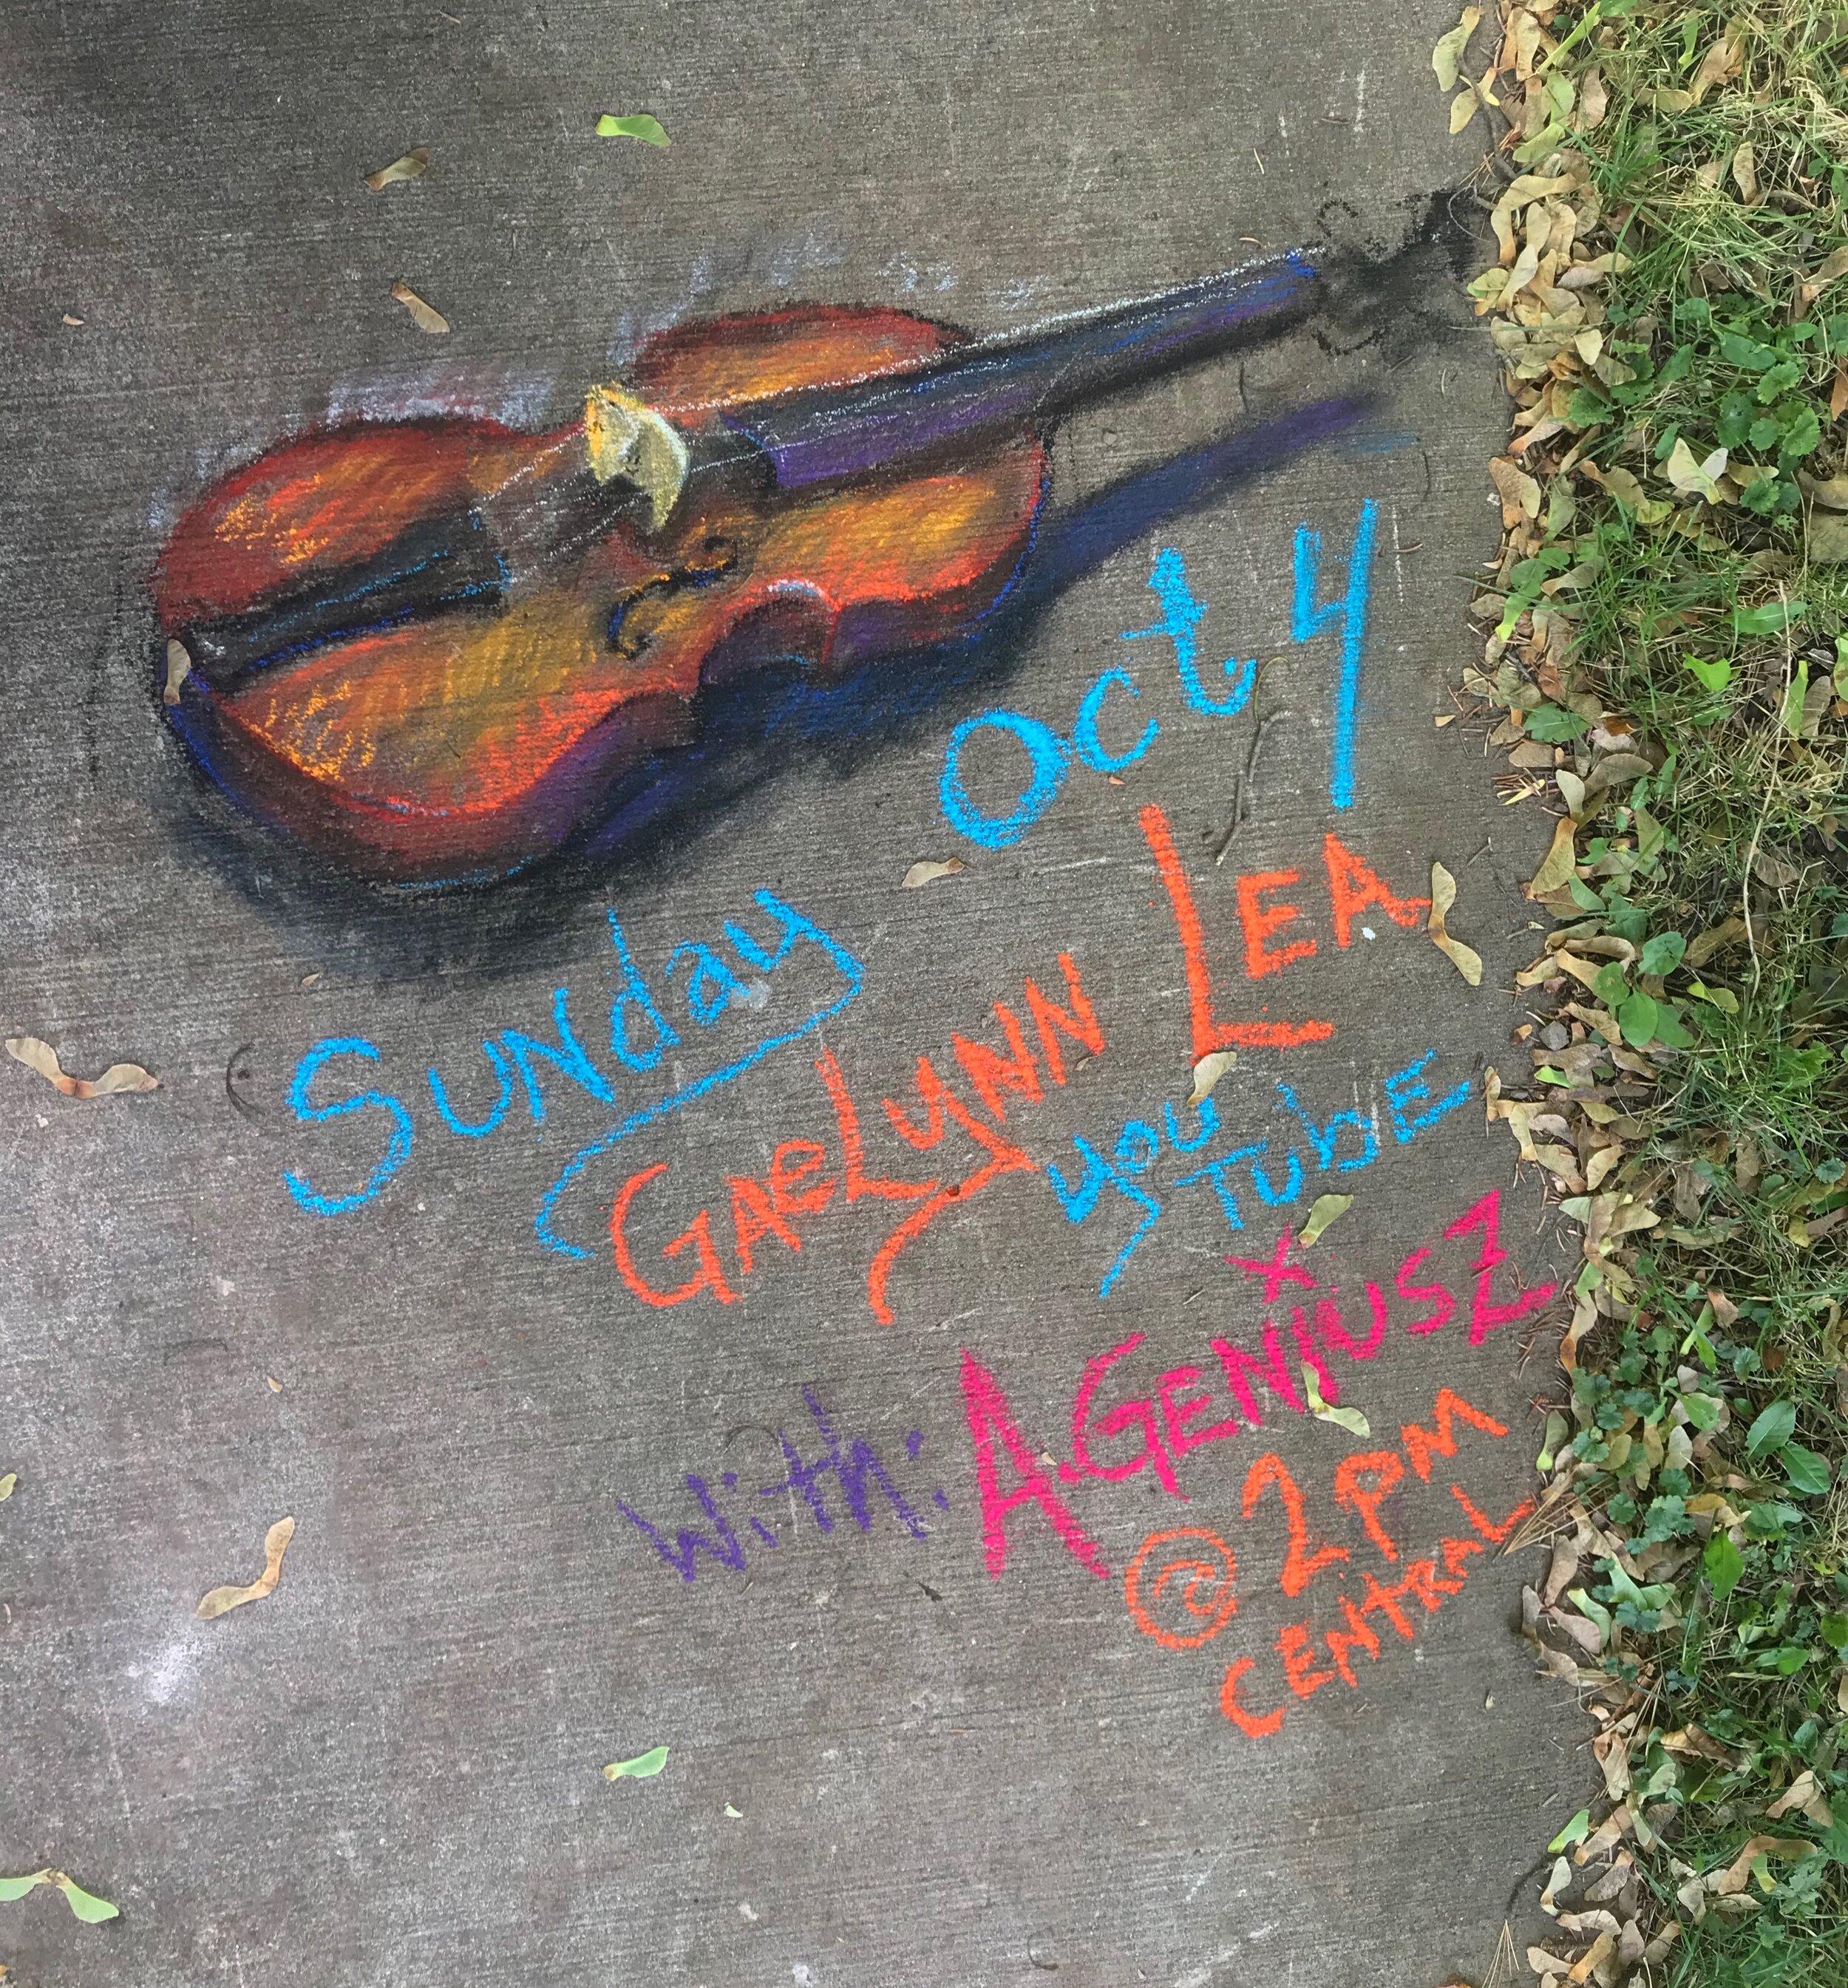 Sunday Oct 4
GAeLyNN LEA
you TubE
With: A.GENiUSZ
@ 2PM
CENtRAL